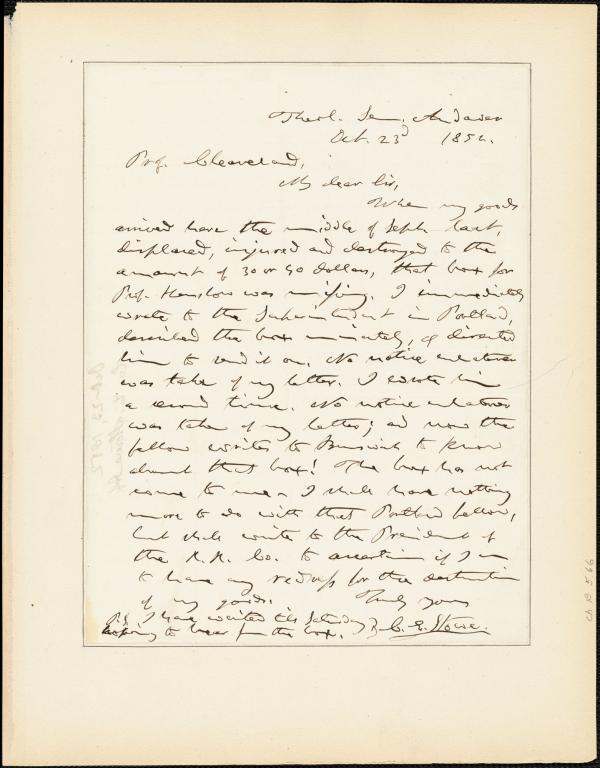 Theol. Sem. Andover
Oct. 23d 1852.
Prof. Cleaveland,
My dear Sir,
When my goods
arrived here the middle of Septr. last,
displaced, injured and destroyed to the
amount of 30 or 40 dollars, that box for
Prof. was missing. I immediately
wrote to the Superintendent in Portland,
described the box minutely, & directed
him to send it on. No notice whatever
was taken of my letter. I wrote him
a second time. No notice whatever
was taken of my letter; and now the
fellow writes to Brunswick to know
about that box! The box has not
come to me. I shall have nothing
more to do with that Portland fellow,
but shall write to the President of
the R.R. Co. to ascertain if I am
to have any redress for the destruction
of my goods. Truly yours
P.S. I have waited till Saturday C. E. Stowe.
hoping to hear from the box.
Oct. 23, 1852
Ch B 5.66